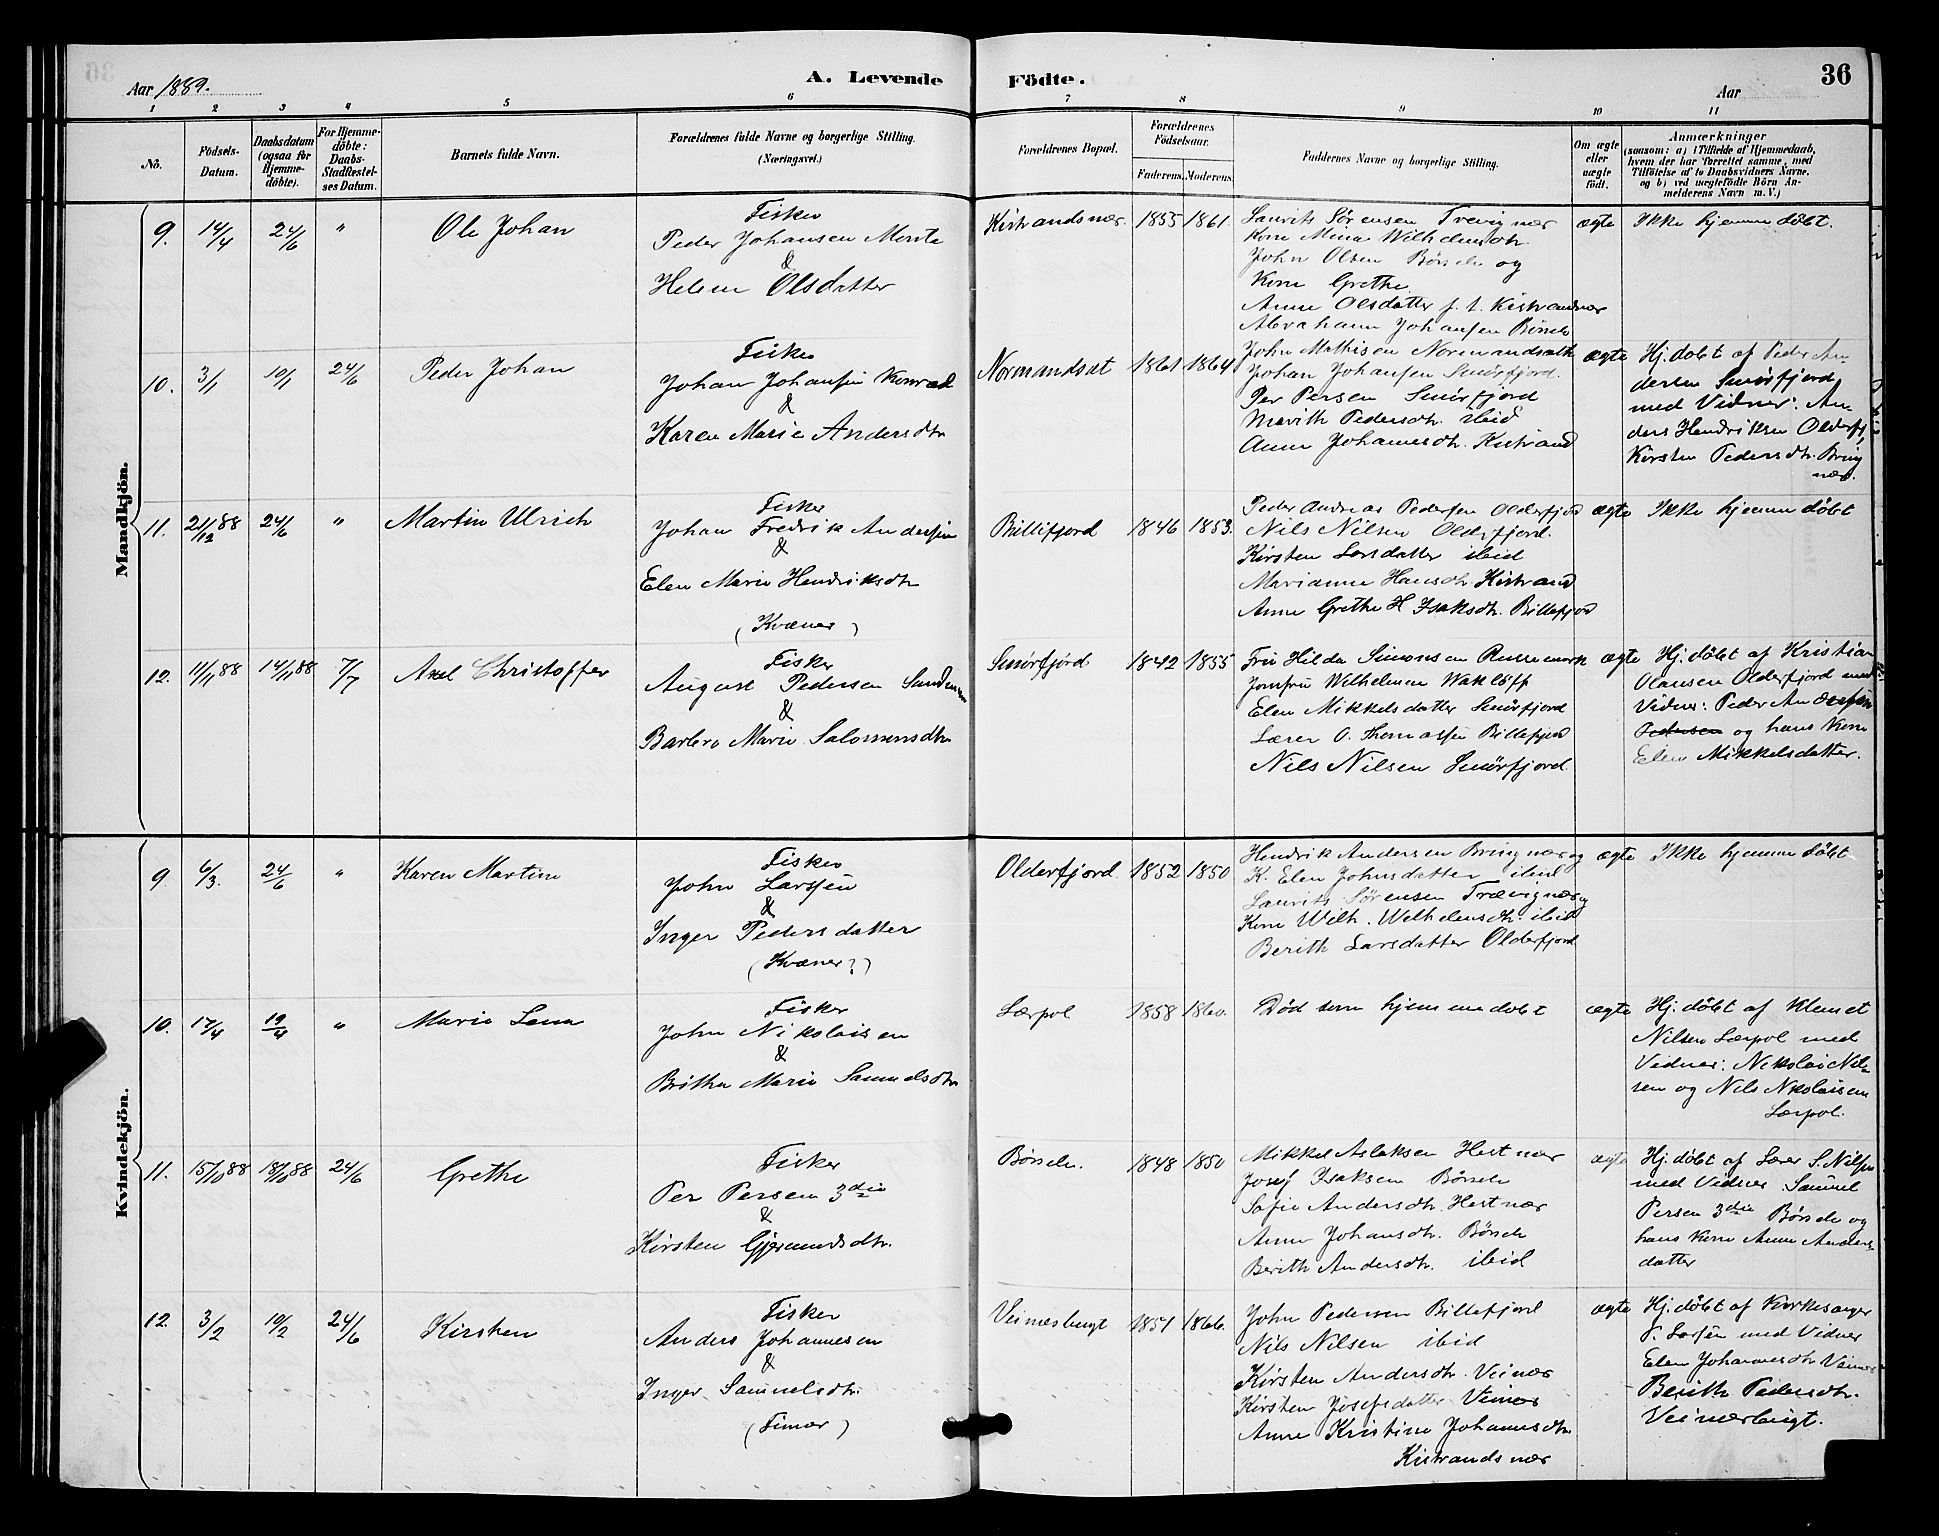 36
Aar 1889.
A. Levende Födte.
Aar
1 2 3 4 5 6 7 8 9 10 11
No.
Födsels-Datum.
Daabsdatum (ogsaa for Hjemmedöbte).
For Hjemmedöbte: Daabs-Stadfæstelses Datum.
Barnets fulde Navn.
Forældrenes fulde Navne og borgerlige Stilling. (Næringsvei.)
Forældrenes Bopæl.
Forældrenes Födselsaar.
Faderens. Moderens.
Faddernes Navne og borgerlige Stilling.
Om ægte eller uægte født.
Anmærkninger
(saasom: a) i Tilfælde af Hjemmedaab, hvem der har forrettet samme, med Tilföielse af to Daabsvidners Navne, og b) ved uægtefödte Börn Anmelderens Navn m. V.)
Mandkjön.
9. 14/4 24/6 " Ole Johan
Fisker
Peder Johansen Monte
&
Helene Olsdatter
Kistrandsnær. 1855 1861.
Laurits Sørensen Trevignær
Kone Mina Wilhelmsdtr.
John Olsen Børsele og
Kone Grethe
Anne Olsdatter f. t. Kistrandnær
Abraham Johansen Børsele
ægte Ikke hjemmedöbt.
10. 3/1 10/1 24/6 Peder Johan
Fisker
Johan Johansen Konrad
&
Karen Marie Andersdtr
Normandsæt 1861 1864
John Mathisen Normandsæth
Johan Johansen Smörfjord.
Per Persen Smörfjord
Marith Pedersdtr. ibid
Anne Johannesdtr. Kistrand
ægte Hj. döbt af Peder An-
dersen Smörfjord
med Vidner: An-
ders Hendriksen Olderfj,
Kirsten Pedersdtr. Bring
nær.
11. 21/12 88 24/6 " Martin Ulrich
Fisker
Johan Fredrik Andersen
&
Elen Marie Hendriksdtr
(Kvæner)
Billifjord 1846 1853.
Peder Andreas Pedersen Olderfjord
Nils Nilsen Olderfjord.
Kirsten Larsdatter ibid
Marianne Hansdtr. Kistrand
Anne Grethe H Isaksdtr. Billefjord
ægte Ikke hjemmedöbt
12. 11/11 88 14/11 88 7/7 Axel Christoffer
Fisker
August Pedersen
&
Barbro Marie Salomonsdtr
Smörfjord 1842 1855
Fru Hilda Simonsen Russemark
Jomfru Wilhelmine Waklöff
Elen Mikkelsdatter Smörfjord
Lærer O. Thomassen Billefjord
Nils Nilsen Smörfjord
ægte Hj. döbt af Kristian
Olausen Olderfjord med
Vidner: Peder Andersen
Pedersen og hans Kone
Elen Mikkelsdatter.
Kvindekjön.
9 6/3. 24/6 " Karen Martine
Fisker
John Larssen
&
Inger Pedersdatter
(Kvæner?)
Olderfjord. 1852 1850
Hendrik Andersen Bringnær og
K. Elen Johnsdatter ibid
Laurits Sørensen Trævignær og
Kone Wilh. Wilhelmsdtr. ibid
Berith Larsdatter Olderfjord
ægte Ikke hjemmedöbt
10. 17/4 19/4 " Marie Lena
Fisker
John Nikolaisen
&
Britha Marie Samuelsdtr
Lærpol 1858 1860.
Död som hjemmedöbt
ægte Hj. döbt af Klemet
Nilsen Lærpol med
Vidner: Nikolai Nil-
sen og Nils Nikolaisen
Lærpol.
11. 15/10 88 18/10 88 24/6 Grethe
Fisker
Per Persen 3die
&
Kirsten Gjermundsdtr.
Börsele. 1848 1850
Mikkel Aslaksen Hestnær
Josef Isaksen Börsele
Sofie Andersdtr. Hestnær
Anne Johansdtr. Börsele
Berith Andersdtr. ibid
ægte Hj. döbt af Lærer S. Nilsen
med Vidner Samuel
Persen 3die Börsele og
hans Kone Anne Anders-
datter
12. 3/2 10/2 24/6 Kirsten
Fisker
Anders Johannesen
&
Inger Samuelsdtr.
(Finner)
Veinesbugt 1851 1866.
John Pedersen Billefjord
Nils Nilsen ibid
Kirsten Andersdtr. Veinær
Kirsten Josefsdatter Veinær
Anne Kristine Johannesdtr
Kistrandsnær
ægte Hj. döbt af Kirkesanger
Larsen med Vidner
Elen Johannesdtr Veinær
Berith Pedersdtr.
Veinærbugt.